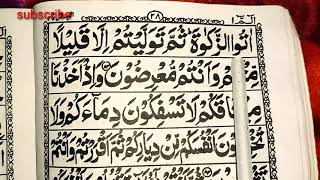 subscribe
اٰتُوا الزَّكٰوةَ ثُمَّ تَوَلَّيْتُمْ اِلَّا قَلِيْلًا
مِّنْكُمْ وَاَنْتُمْ مُّعْرِضُوْنَ وَاِذْ اَخَذْنَا
مِيْثَاقَكُمْ لَا تَسْفِكُوْنَ دِمَآءَكُمْ وَلَا
تُخْرِجُوْنَ اَنْفُسَكُمْ مِّنْ دِيَارِكُمْ ثُمَّ اَقْرَرْتُمْ وَاَنْتُمْ